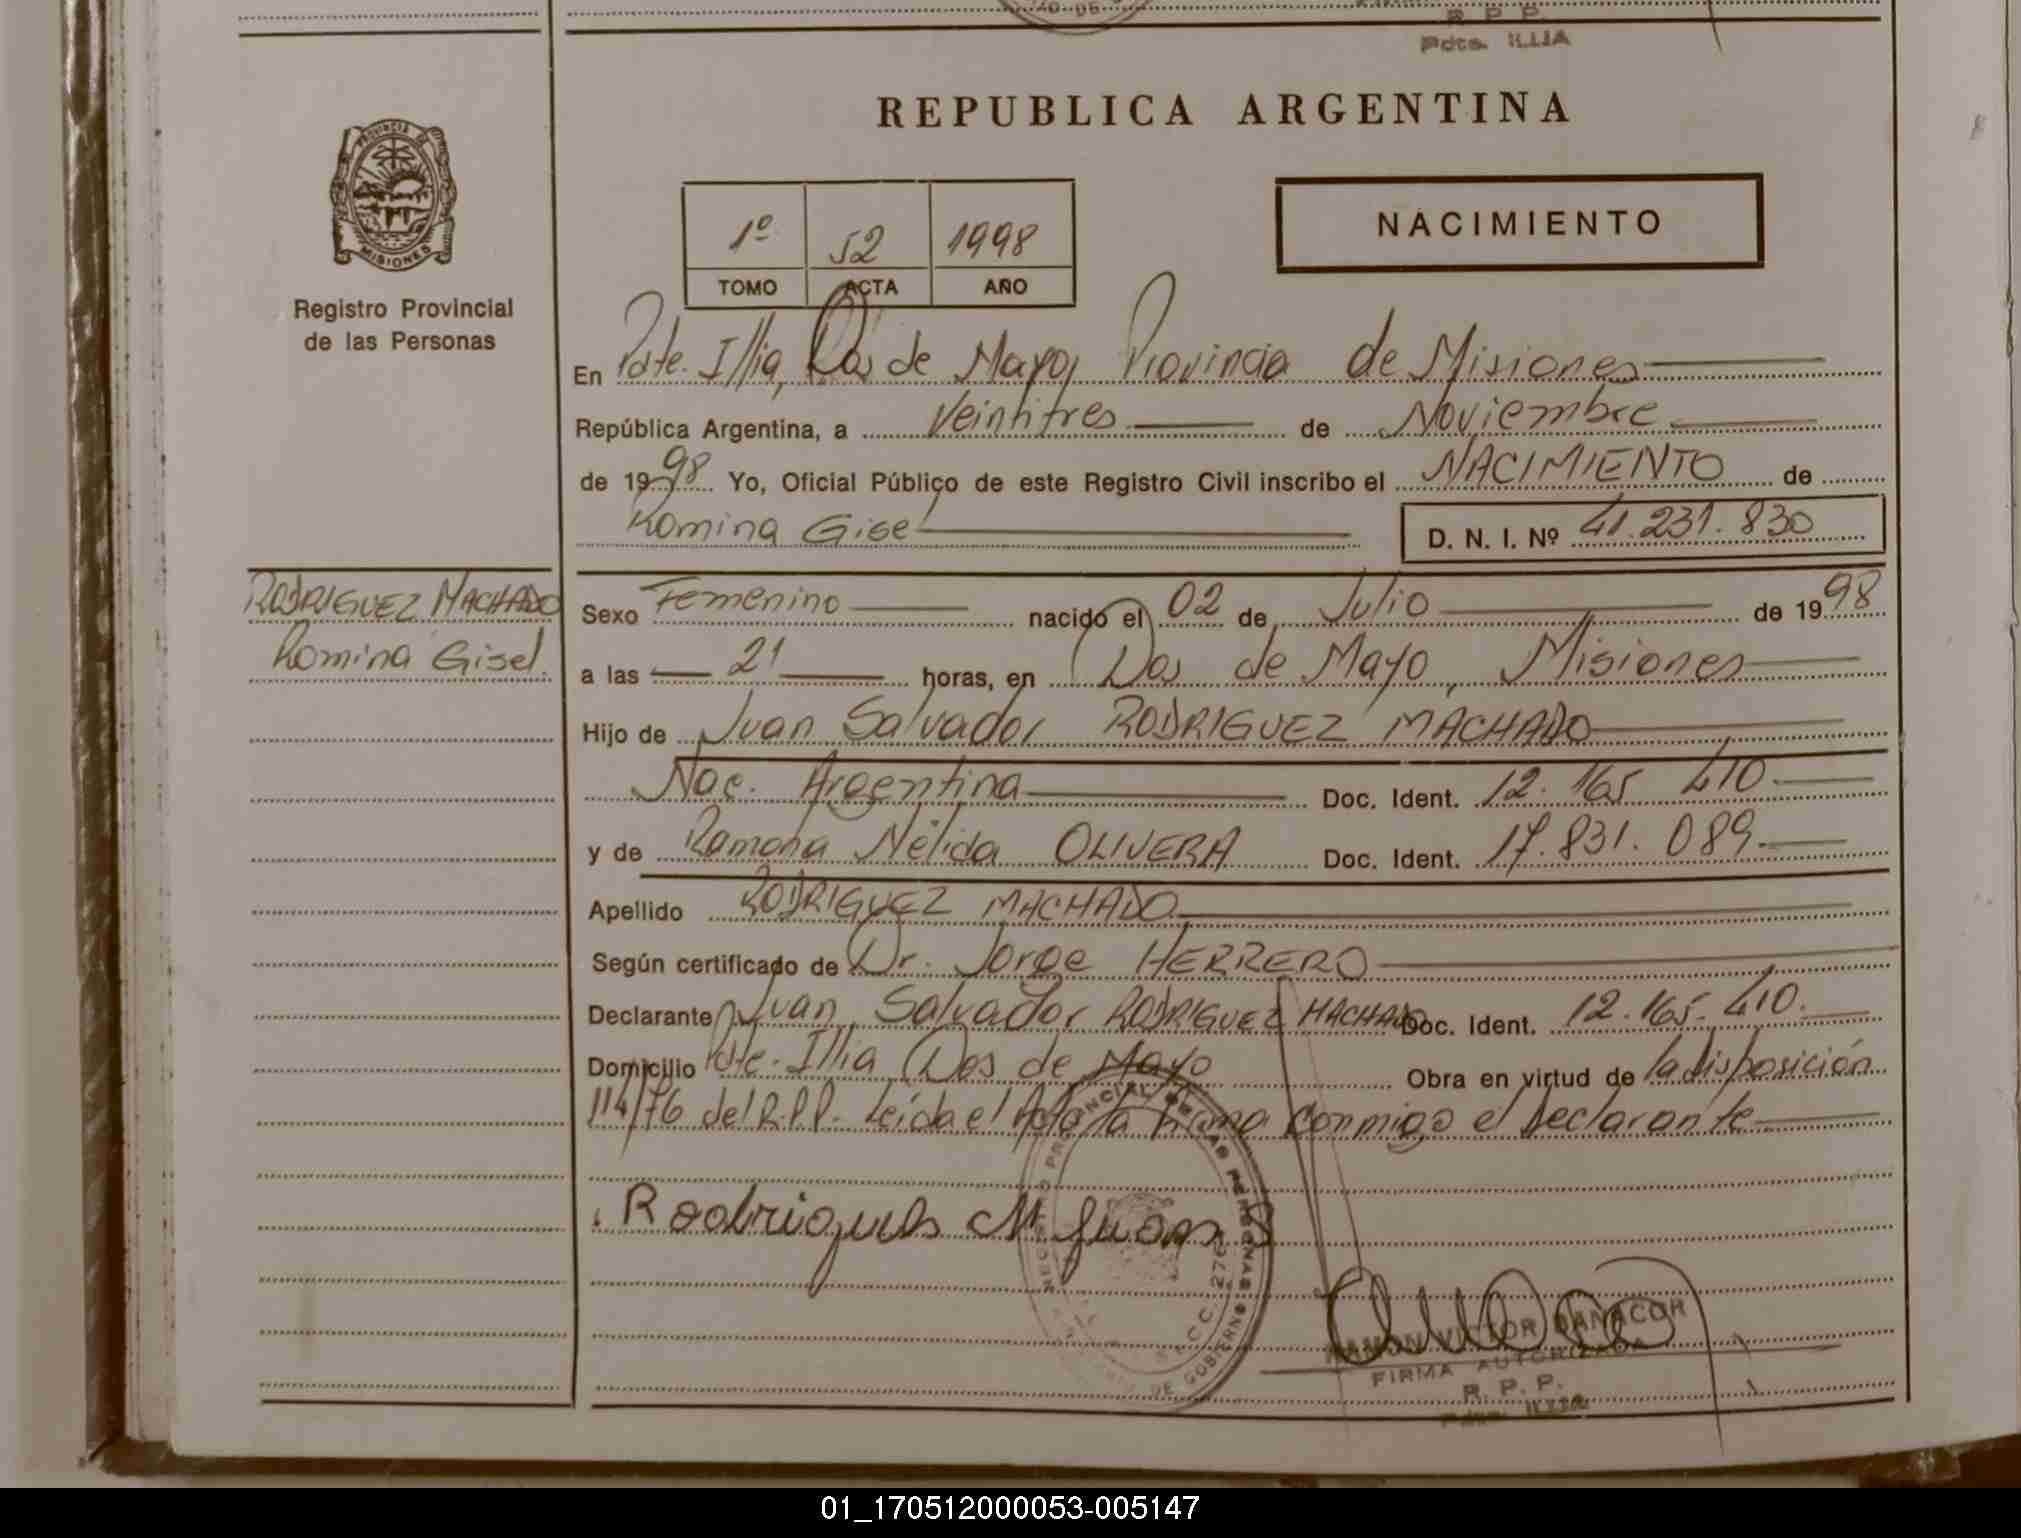 R. P. P.
Pdte. ILLIA
PROVINCIA DE
MISIONES
Registro Provincial
de las Personas
REPUBLICA ARGENTINA
NACIMIENTO
1º 52 1998
TOMO ACTA AÑO
En Pdte. Illia, Dos de Mayo, Provincia de Misiones
República Argentina, a Veintitres de Noviembre
de 1998 Yo, Oficial Público de este Registro Civil inscribo el NACIMIENTO de
Romina Gisel
D. N. I. Nº 41.231.830
RODRIGUEZ MACHADO
Romina Gisel.
Sexo Femenino nacido el 02 de Julio de 1998
a las 21 horas, en Dos de Mayo, Misiones
Hijo de Juan Salvador RODRIGUEZ MACHADO
Nac. Argentina Doc. Ident. 12.165 410
y de Ramona Nélida OLIVERA Doc. Ident. 17.831.089
Apellido RODRIGUEZ MACHADO
Según certificado de Dr. Jorge HERRERO
Declarante Juan Salvador RODRIGUEZ MACHADO Doc. Ident. 12.165.410.
Domicilio Pdte. Illia Dos de Mayo Obra en virtud de la disposición
114/76 del R.P.P. Leída el Acta la firma conmigo el Declarante
Rodrigues M Juan S
REGISTRO PROVINCIAL DE LAS PERSONAS
DE GOBIERNO
RAMON VICTOR DANACOR
FIRMA AUTORIZADA
R. P. P.
Pdte. ILLIA
01_170512000053-005147